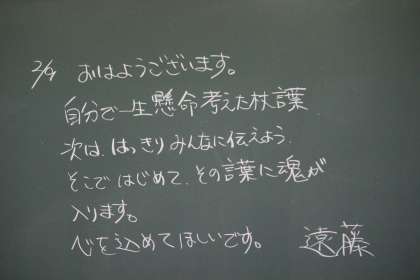 2/9 おはようございます。
自分で一生懸命考えた杖言葉
次は、はっきりみんなに伝えよう。
そこではじめて、その言葉に魂が
入ります。
心を込めてほしいです。 遠藤